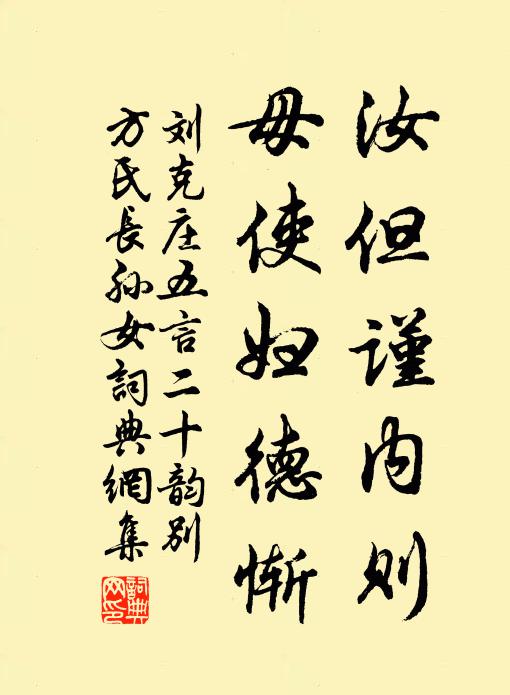 汝但谨内则
毋使妇德惭
刘克庄五言二十韵别
方氏長孙女詞典網集
詞典網印